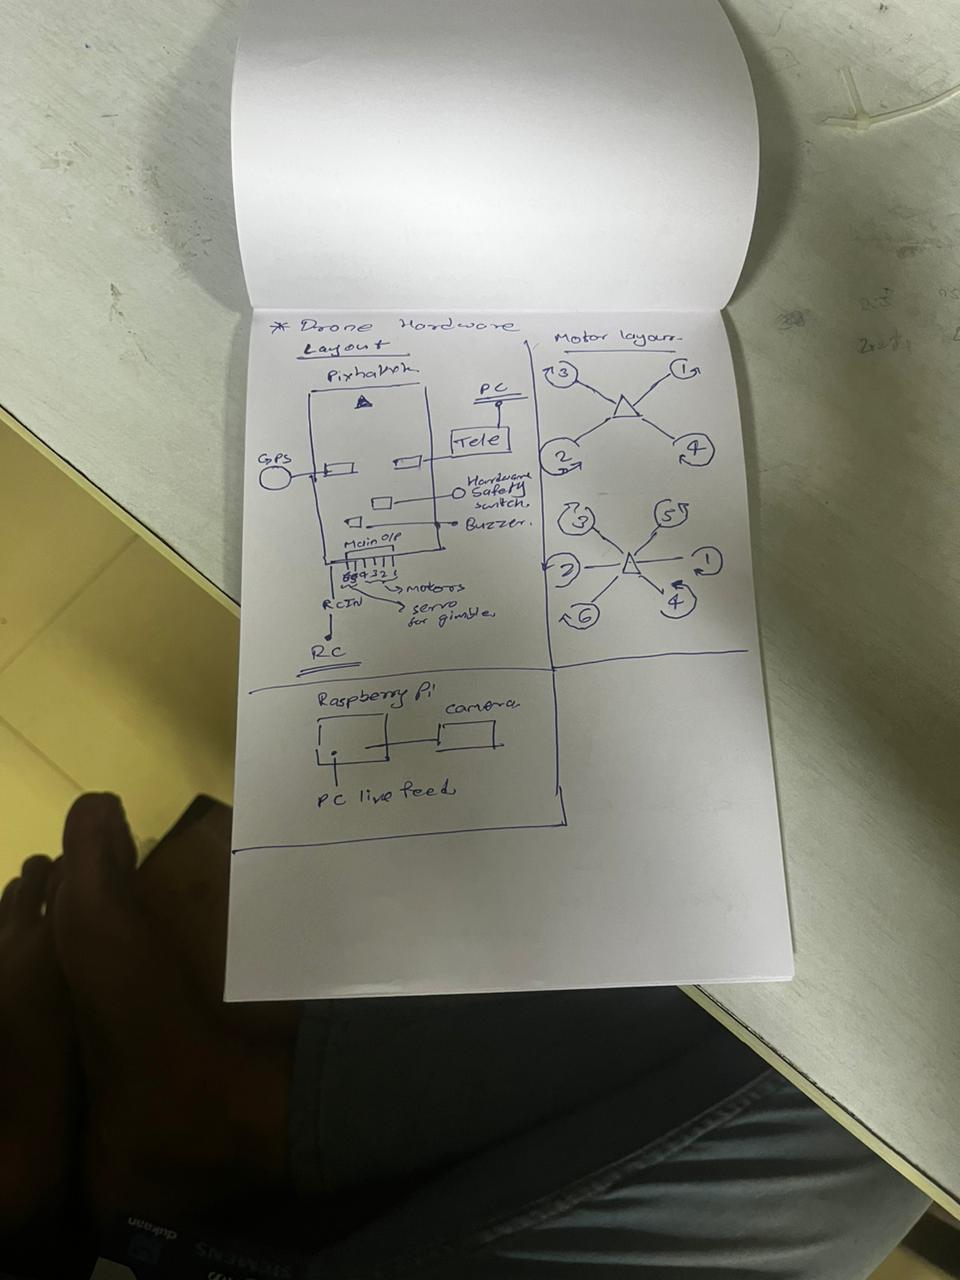 * Drone Hardware
Layout
Pixhawk
GPS
PC
Tele
Hardware
Safety
switch
Buzzer.
Main O/P
4 3 2 1
Motors
servo
for gimble
RCIN
RC
Motor layout
3
1
2
4
3
5
2
1
6
4
Raspberry Pi
camera
PC live feed
SIEMENS
dukaan